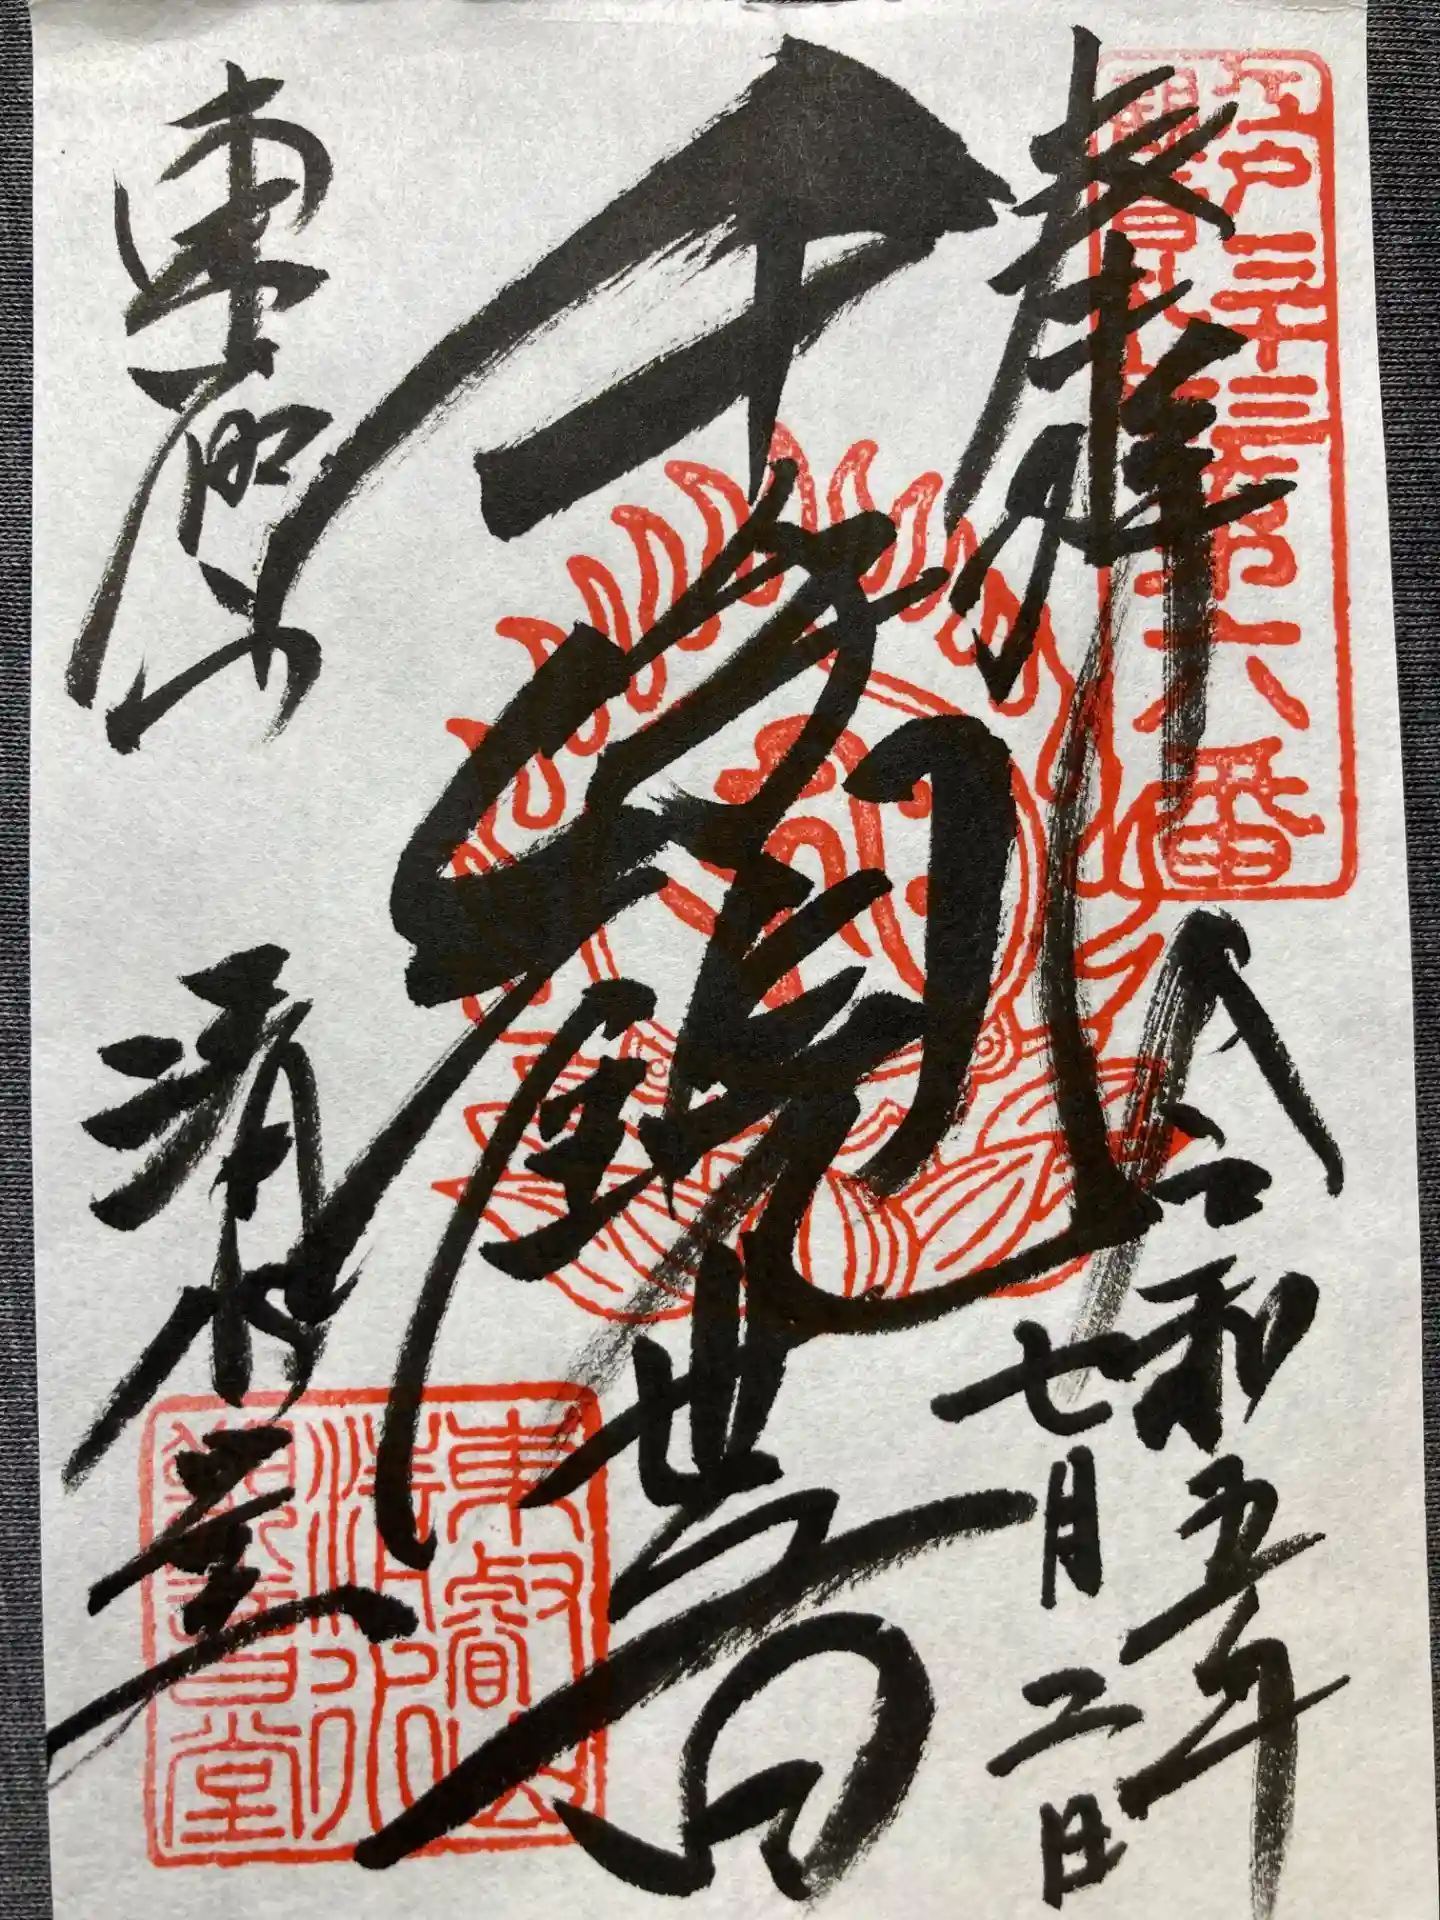 奉拝
令和五年
七月二日
千手観世音
東叡山
清水堂
江戸三十三
第六番
東叡山
觀音堂